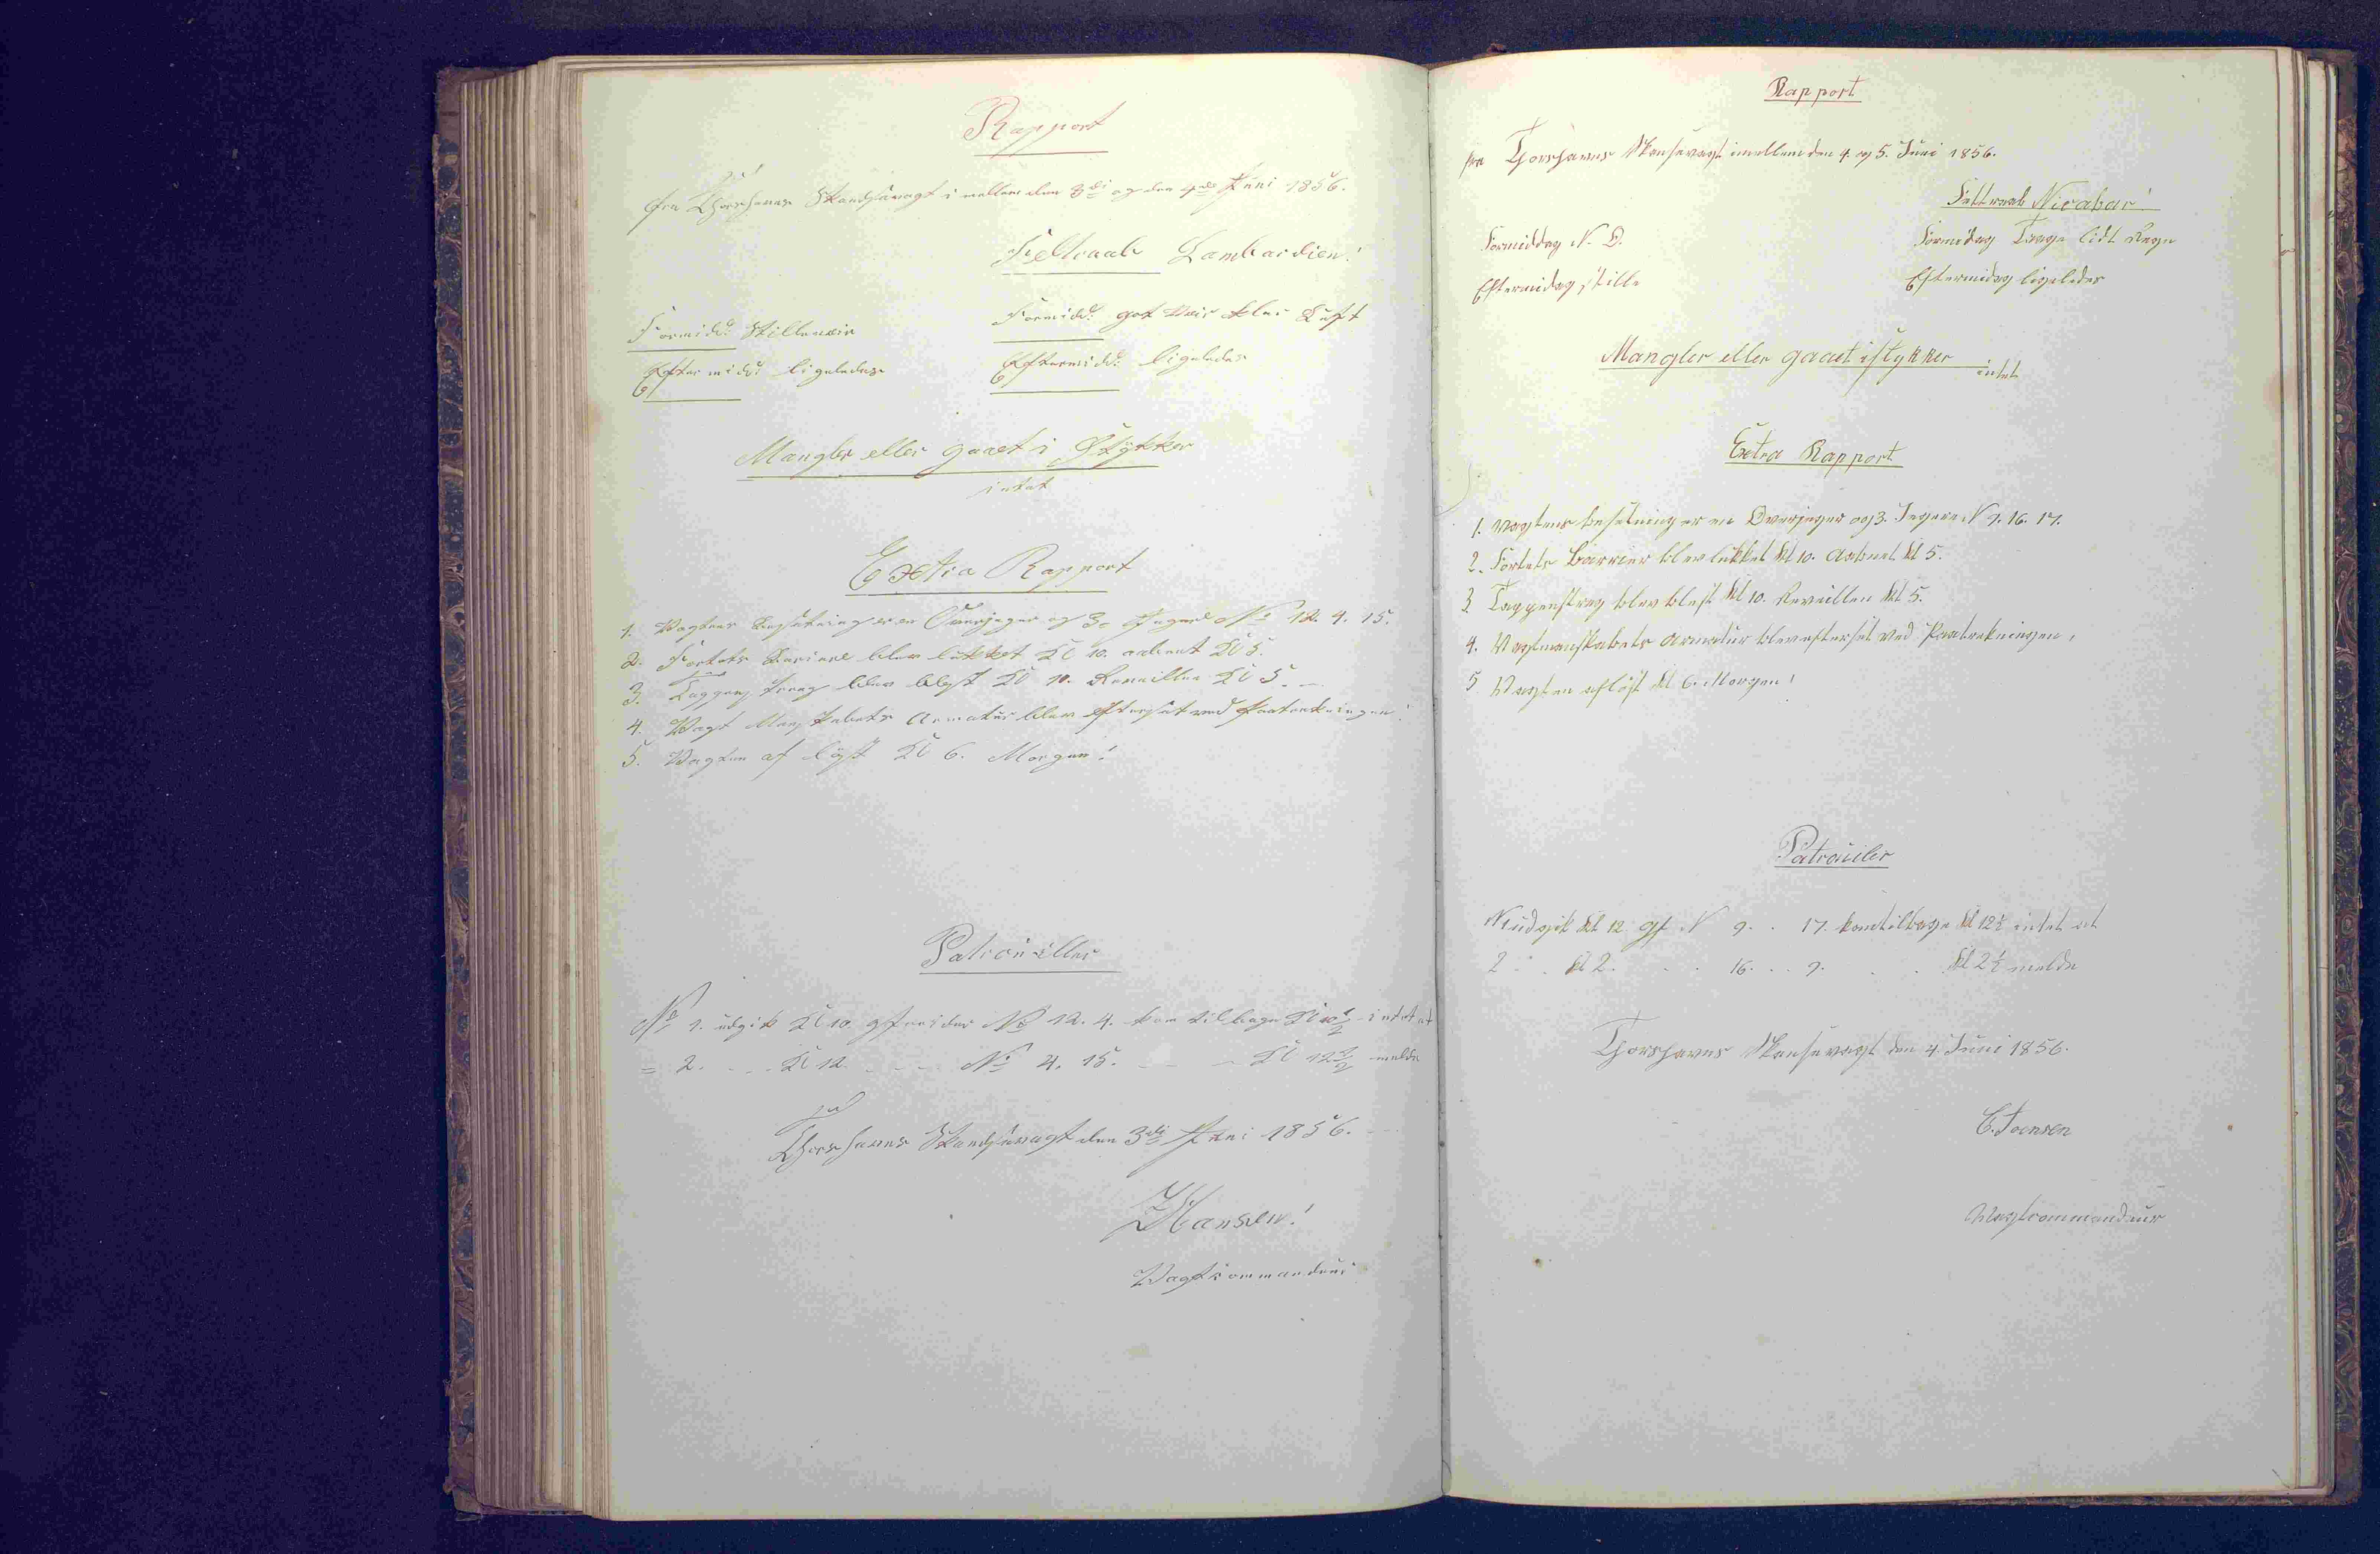 Rapport
fra Thorshavns Skandsevagt i mellem den 3di og den 4de Juni 1856.
Feltraab Lombardien!
Formidd: Stilleveir
Eftermidd: ligeledes
Formidd: got Veir klar Luft
Eftermidd: ligeledes
Mangler eller gaaet i Stykker
intet
Extra Rapport
1. Vagtens Besætning er en Overjæger og 3. Jægere No 12. 4. 15.
2. Fortets Bariere blev lukket Kl 10. aabent Kl 5.
3. Tappenstreg blev blæst Kl 10. Reveillen Kl 5. -
4. Vagt Manskabets Armatur blev efterset ved Paatrækningen!
5. Vagten af løst Kl 6. Morgen!
Patrouiller
No 1. udgik Kl 10. gefreider No 12. 4. kom tilbage Kl 10 1/2 - intet at
= 2. - - - Kl 12. - - - No 4. 15. - - - Kl 12 1/2 melde
Thorshavns Skandsevagt den 3di Juni 1856.
Hansen!
Vagtcommandeur
Rapport
fra Thorshavns Skansevagt imellem den 4. og 5. Juni 1856.
Feltraab Nicabar!
Formiddag N. O.
Eftermidag stille
Formidag Taage lidt Regn
Eftermidag ligeledes
Mangler eller gaaet istykker intet
Extra Rapport
1. Vagtens besetning er en Overjeger og 3. Jegere N 9. 16. 17.
2. Fortets Barrier blev lukket Kl 10. Aabnet Kl 5.
3 Tappenstreg blev blest Kl 10. Reveillen Kl 5.
4. Vagtmanskabets Armatur blev efterset ved Paatrekningen.
5. Vagten afløst Kl 6. Morgen!
Patrouiler
N 1 udgik Kl 12 gf. N 9. . 17. kom tilbage Kl 12 1/2 intet at
2 . . Kl 2. . . . 16. . . 9. . . . Kl 2 1/2 melde
Thorshavns Skansevagt den 4. Juni 1856.
C. Joensen
Vagtcommandeur